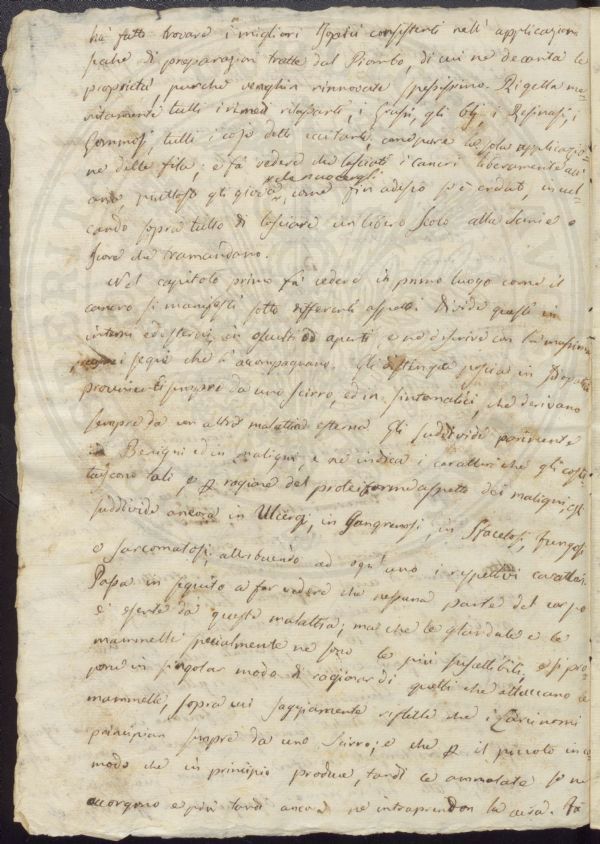 ha fatto trovare i migliori Topici consistenti nell' applicazion
di preparazion tratte dal Piombo, di cui ne decanta le
proprietà, purche venghin rinnovate spessissimo. Rigetta me-
ritamente tutti i rimedj i Grassi, gli Olj, i Resinosi, i
Gommosi, tutti i così detti eccitanti, la sola applicazio-
ne delle fila, e fà vedere che lasciati i cancri liberamente all'
aria, piuttosto gli giova che nuocergli, come fin adesso s'è creduto, incul-
cando sopra tutto di lasciare un libero scolo alla Sanie o
Icore che tramandano.
Nel capitolo primo fà vedere in primo luogo come il
cancro si manifesti sotto differenti aspetti. Divide questi in
interni ed esterni, in occulti ed aperti, e ne descrive con la massima
i segni che l'accompagnano. Gli distingue poscia in Idiopatici
provenienti sempre da uno scirro, ed in sintomatici, che derivano
sempre da un altra malattia esterna. Gli suddivide parimente
in Benigni ed in maligni, e ne indica i caratteri che gli costi-
tuiscono tali, e p ragione del proteiforme aspetto dei maligni, gli
suddivide ancora in Ulcerosi, in Gangrenosi, in Sfacelosi, fungosi
e sarcomatosi, attribuendo ad ogn' uno i respettivi caratteri.
Passa in seguito a far vedere che nessuna parte del corpo
è esente da questa malattia; ma che le glandule e le
mammelle specialmente ne sono le più suscettibili, e si pro-
pone in singolar modo di ragionar di quelli che attaccano le
mammelle, sopra cui saggiamente riflette che i Carcinomi
principian sempre da uno Scirro; e che p il piccolo inco-
modo che in principio produce, tardi le ammalate se ne
accorgono e più tardi ancora ne intraprendon la cura. Fà